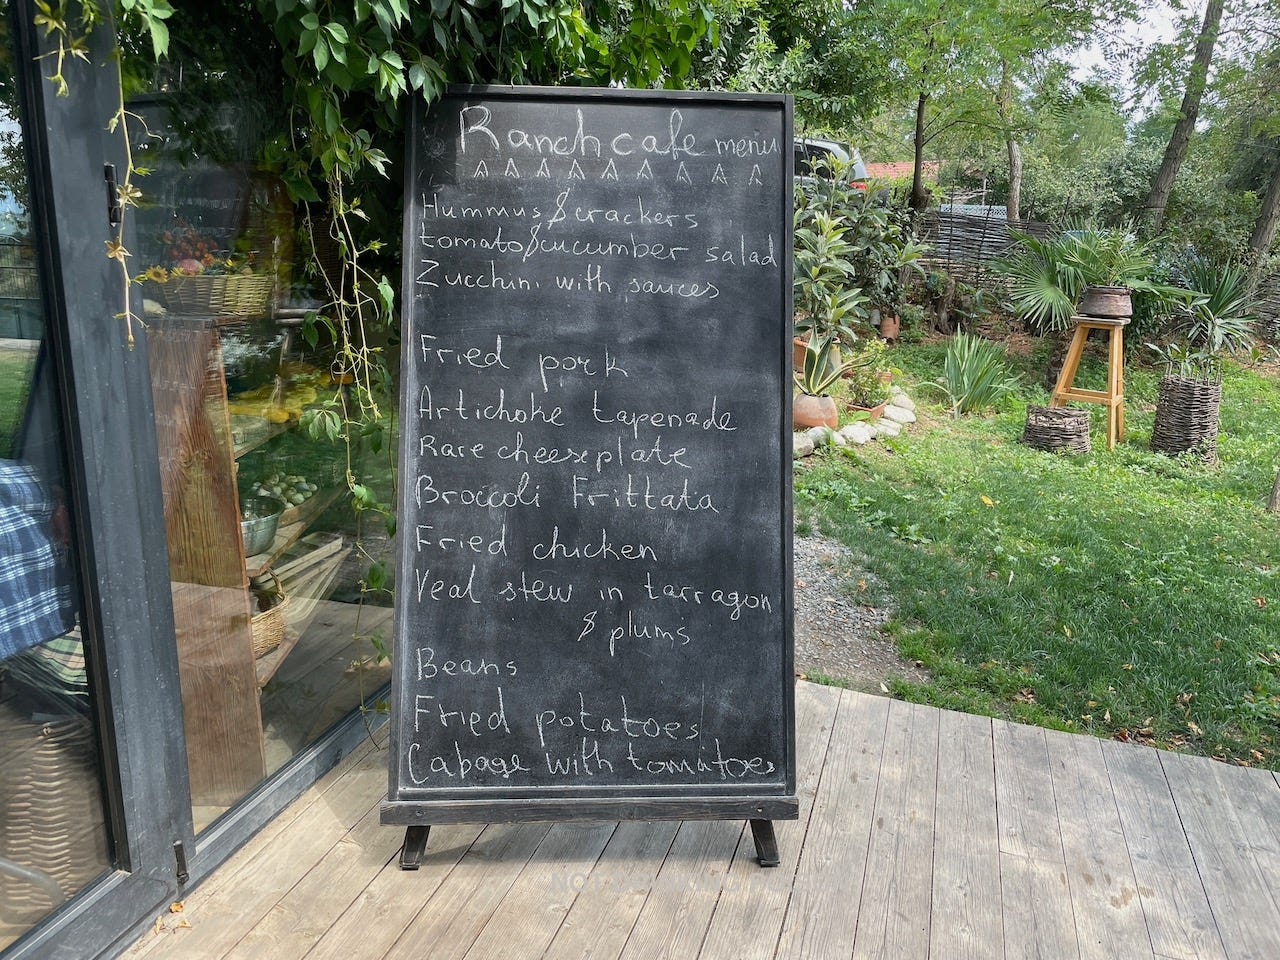 Ranch cafe menu
Hummus & crackers
tomato & cucumber salad
Zucchini with sauces
Fried pork
Artichoke tapenade
Rare cheese plate
Broccoli Frittata
Fried chicken
Veal stew in tarragon
& plums
Beans
Fried potatoes
Cabage with tomatoes